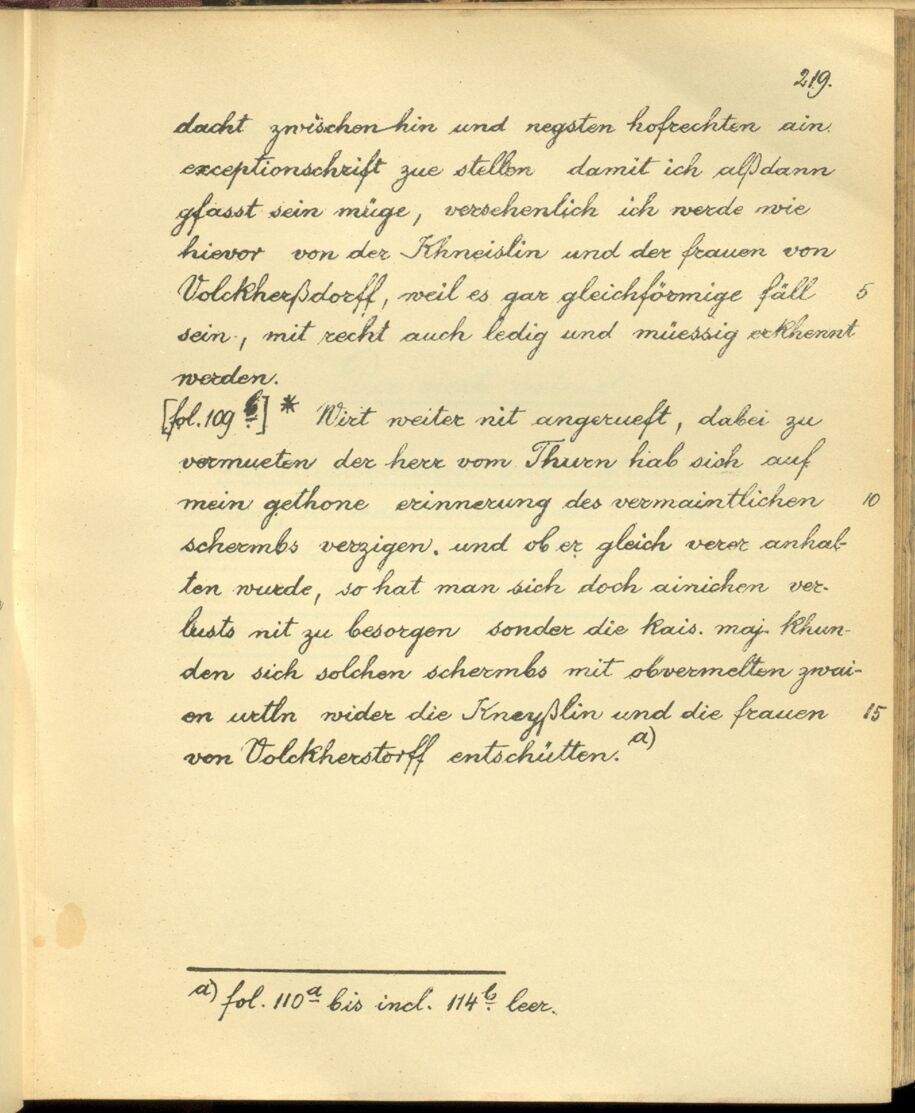 219.
dacht zwischen hin und negsten hofrechten ain
exceptionschrift zue stellen damit ich alßdann
gfasst sein müge, versehenlich ich werde wie
hievor von der Khneislin und der frauen von
Volckherßdorff, weil es gar gleichförmige fäll 5
sein, mit recht auch ledig und müessig erkhennt
werden.
[fol. 109 b] * Wirt weiter nit angerueft, dabei zu
vermueten der herr vom Thurn hab sich auf
mein gethone erinnerung des vermaintlichen 10
schermbs verzigen. und ob er gleich verer anhal-
ten wurde, so hat man sich doch ainichen ver-
lusts nit zu besorgen sonder die kais. maj. khun-
den sich solchen schermbs mit obvermelten zwai-
en urtln wider die Kneyßlin und die frauen 15
von Volckherstorff entschütten. a)
a) fol. 110 a bis incl. 114 b leer.